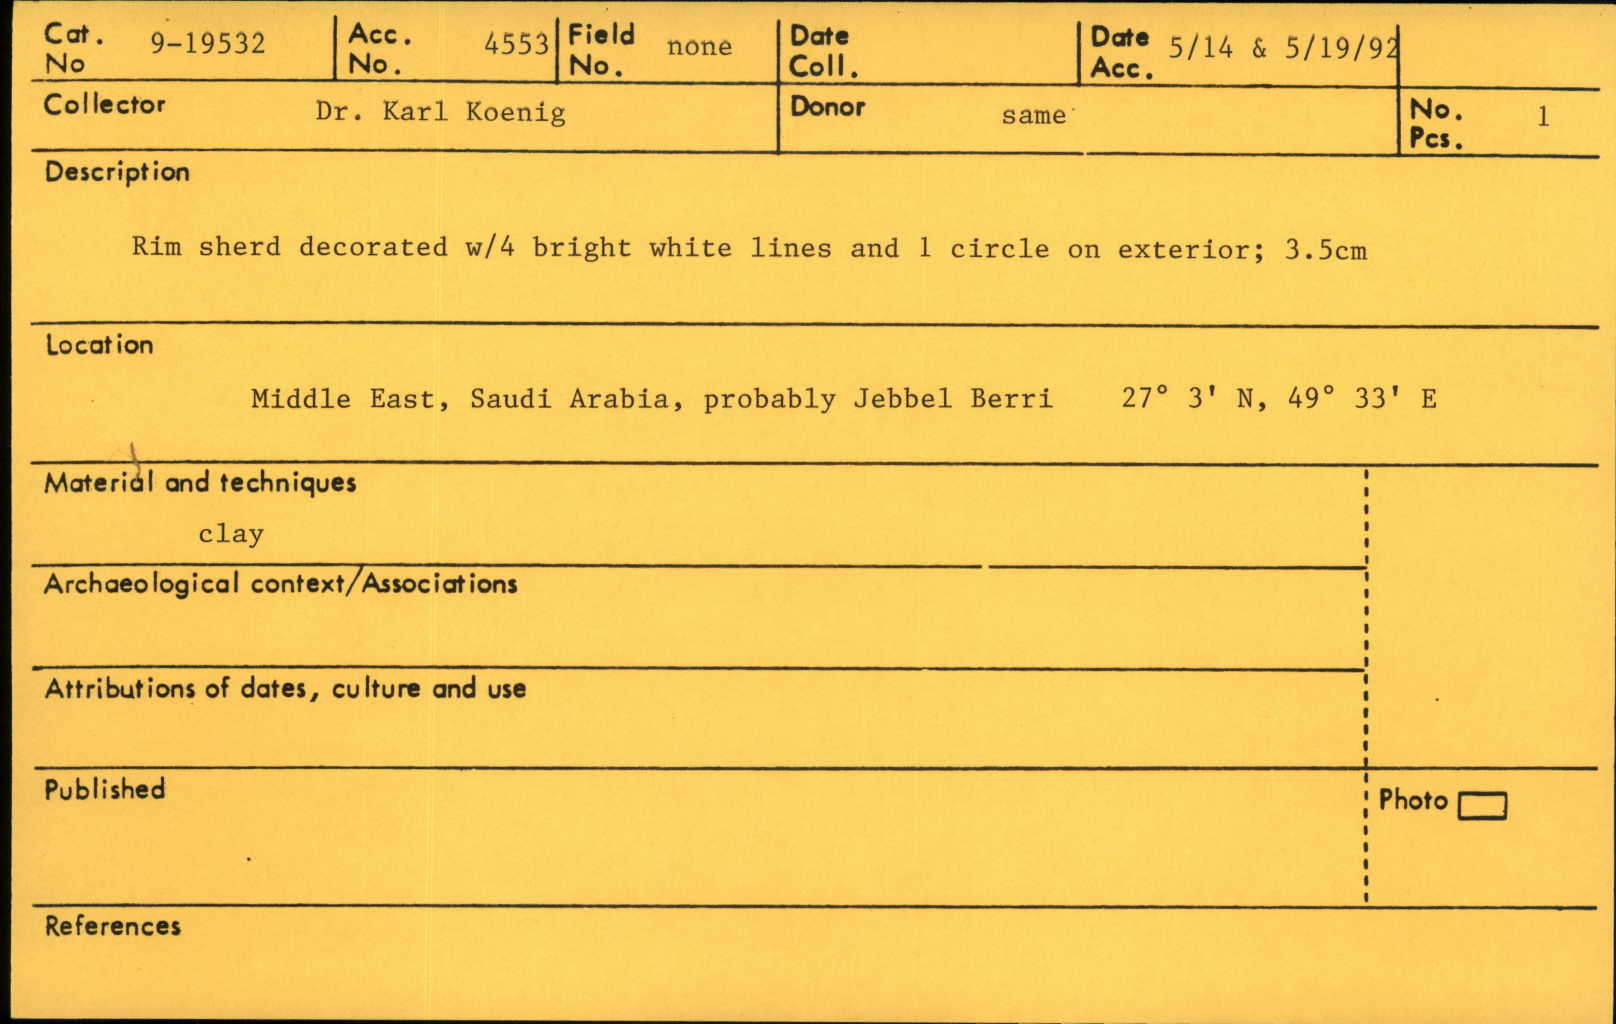 Cat. No 9-19532 Acc. No. 4553 Field No. none Date Coll. Date Acc. 5/14 & 5/19/92
Collector Dr. Karl Koenig Donor same No. Pcs. 1
Description
Rim sherd decorated w/4 bright white lines and 1 circle on exterior; 3.5cm
Location
Middle East, Saudi Arabia, probably Jebbel Berri 27° 3' N, 49° 33' E
Material and techniques
clay
Archaeological context/Associations
Attributions of dates, culture and use
Published
Photo
References